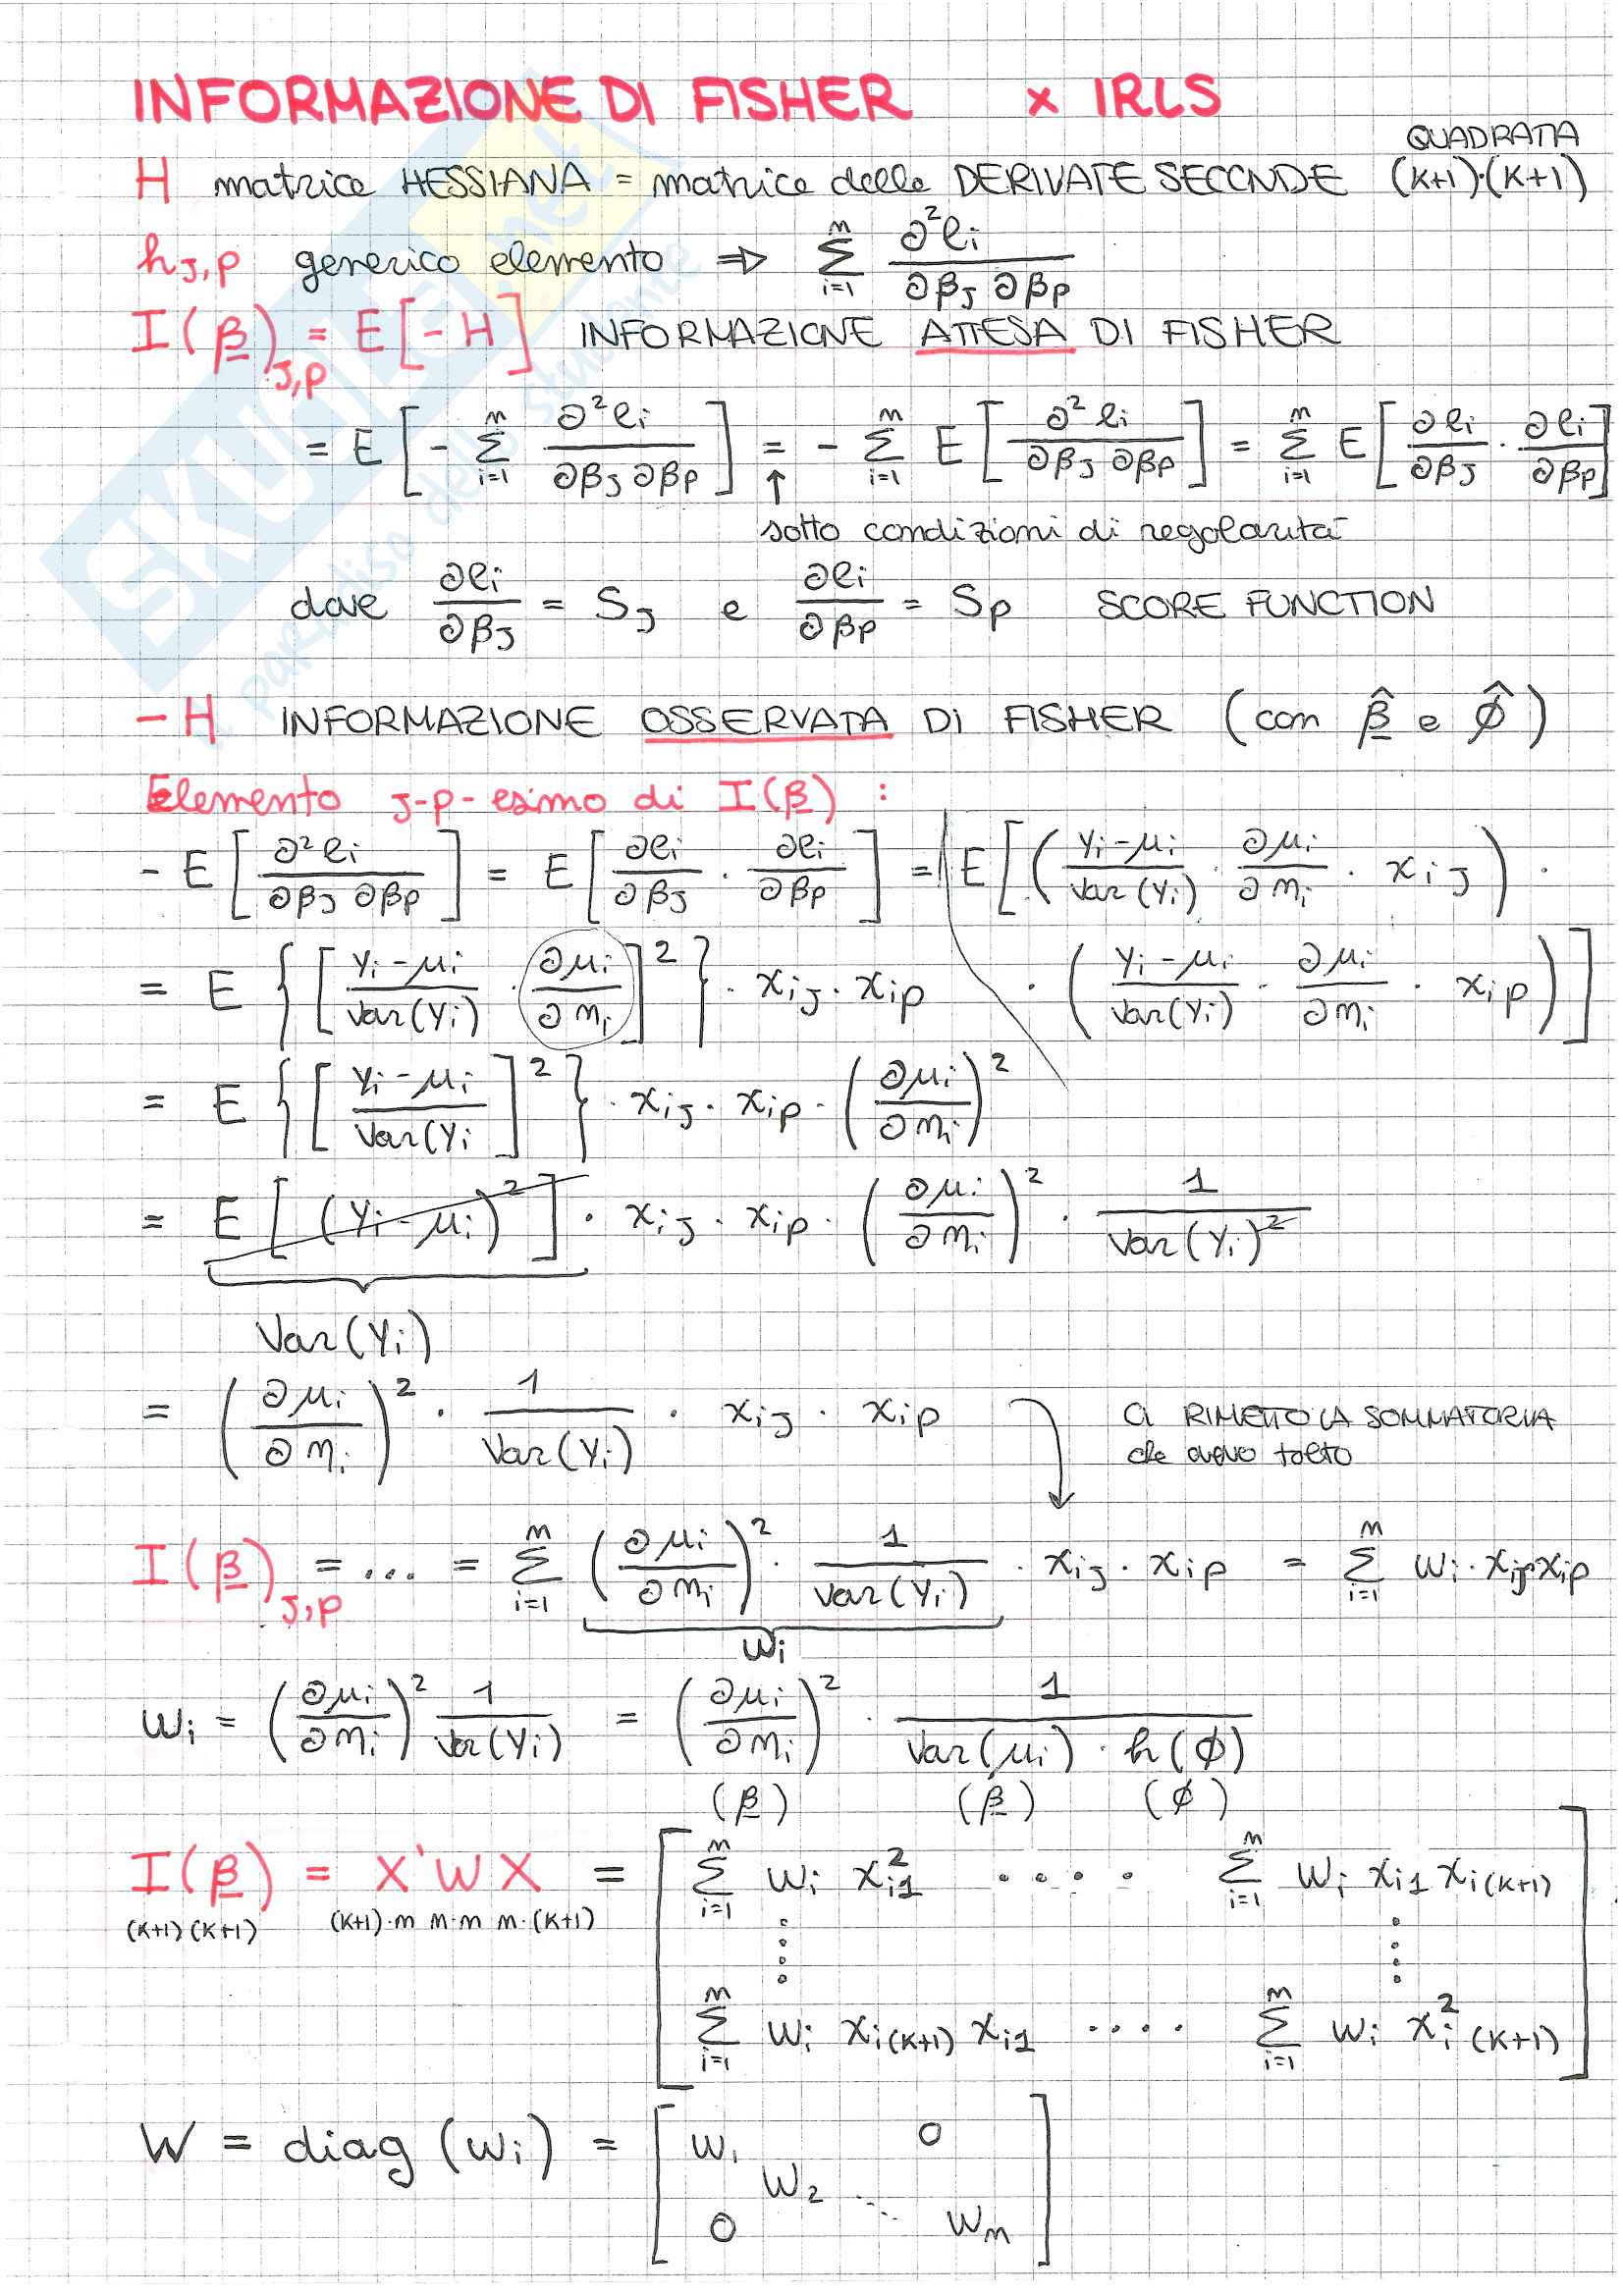 INFORMAZIONE DI FISHER × IRLS
QUADRATA
H matrice HESSIANA = matrice delle DERIVATE SECONDE (K+1)·(K+1)
h_{J,P} generico elemento ⇒ Σ_{i=1}^{n} ∂²ℓi / ∂βJ ∂βP
I(β)_{J,P} = E[-H] INFORMAZIONE ATTESA DI FISHER
= E[ - Σ_{i=1}^{n} ∂²ℓi / ∂βJ ∂βP ] = - Σ_{i=1}^{n} E[ ∂²ℓi / ∂βJ ∂βP ] = Σ_{i=1}^{n} E[ ∂ℓi/∂βJ · ∂ℓi/∂βP ]
↑ sotto condizioni di regolarità
dove ∂ℓi/∂βJ = SJ e ∂ℓi/∂βP = SP SCORE FUNCTION
-H INFORMAZIONE OSSERVATA DI FISHER (con β̂ e ϕ̂)
Elemento J-P-esimo di I(β) :
- E[ ∂²ℓi / ∂βJ ∂βP ] = E[ ∂ℓi/∂βJ · ∂ℓi/∂βP ] = E[ ( (Yi-μi)/Var(Yi) · ∂μi/∂ηi · xiJ ) ·
· ( (Yi-μi)/Var(Yi) · ∂μi/∂ηi · xiP ) ]
= E{ [ (Yi-μi)/Var(Yi) · ∂μi/∂ηi ]² } · xiJ · xiP
= E{ [ (Yi-μi)/Var(Yi ]² } · xiJ · xiP · (∂μi/∂ηi)²
= E[ (Yi-μi)² ] · xiJ · xiP · (∂μi/∂ηi)² · 1/Var(Yi)²
Var(Yi)
= (∂μi/∂ηi)² · 1/Var(Yi) · xiJ · xiP
CI RIMETTO LA SOMMATORIA
che avevo tolto
I(β)_{J,P} = ... = Σ_{i=1}^{n} (∂μi/∂ηi)² · 1/Var(Yi) · xiJ · xiP = Σ_{i=1}^{n} wi · xiJ·xiP
wi
wi = (∂μi/∂ηi)² 1/Var(Yi) = (∂μi/∂ηi)² · 1/(Var(μi) · h(ϕ))
(β) (β) (ϕ)
I(β) = X'WX = [ Σ_{i=1}^{n} wi xi1² .... Σ_{i=1}^{n} wi xi1 xi(K+1)
(K+1)(K+1) (K+1)·n n·n n·(K+1)
⋮ ⋮
Σ_{i=1}^{n} wi xi(K+1) xi1 .... Σ_{i=1}^{n} wi xi²(K+1) ]
W = diag(wi) = [ w1 0
w2 ...
0 wn ]
SKUOLA.net
il paradiso dello studente